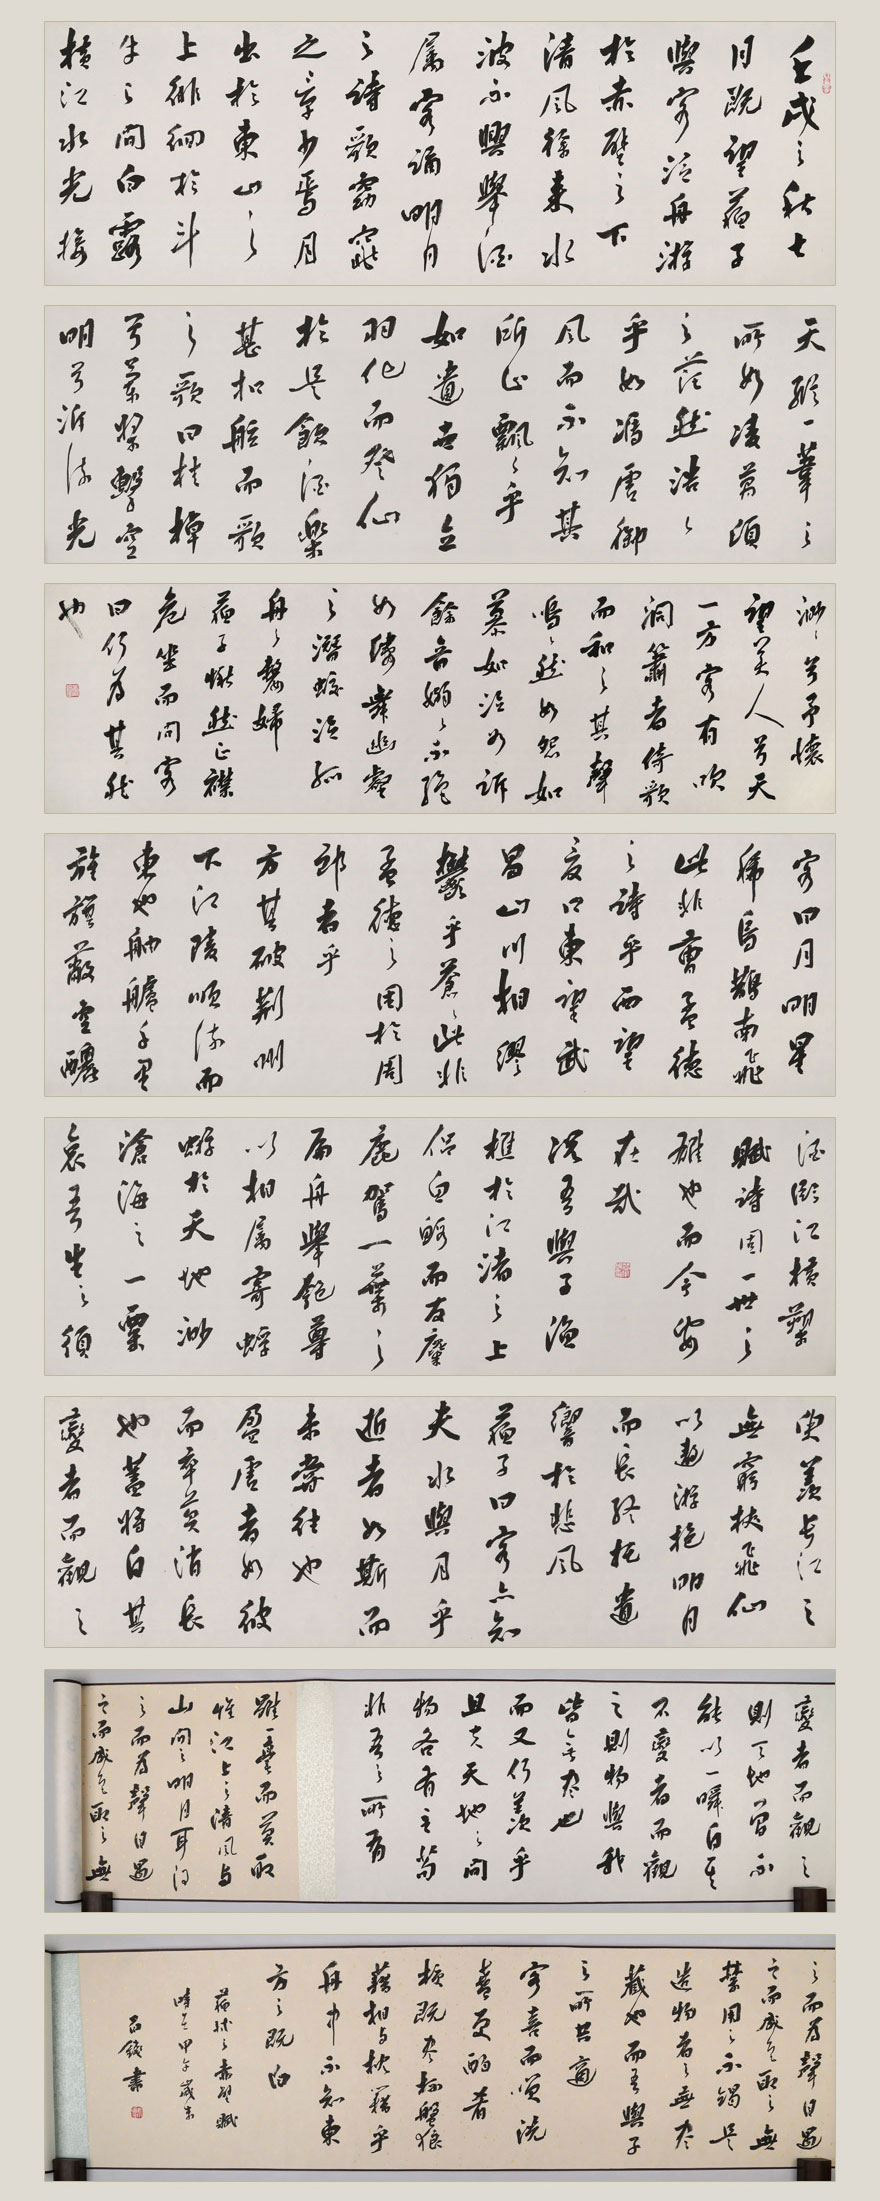 壬戌之秋七
月既望蘇子
與客泛舟游
於赤壁之下
清風徐來水
波不興舉酒
属客誦明月
之詩歌窈窕
之章少焉月
出於東山之
上徘徊於斗
牛之間白露
橫江水光接
天縱一葦之
所如凌萬頃
之茫然浩々
乎如馮虛御
風而不知其
所止飄々乎
如遺世獨立
羽化而登仙
於是飲酒樂
甚扣舷而歌
之歌曰桂棹
兮蘭槳擊空
明兮泝流光
渺々兮予懷
望美人兮天
一方客有吹
洞簫者倚歌
而和之其聲
嗚々然如怨如
慕如泣如訴
餘音嫋々不絕
如縷舞幽壑
之潛蛟泣孤
舟之嫠婦
蘇子愀然正襟
危坐而問客
曰何為其然
也
客曰月明星
稀烏鵲南飛
此非曹孟德
之詩乎西望
夏口東望武
昌山川相繆
鬱乎蒼々此非
孟德之困於周
郎者乎
方其破荆州
下江陵順流而
東也舳艫千里
旌旗蔽空釃
酒臨江橫槊
賦詩固一世之
雄也而今安
在哉
況吾與子漁
樵於江渚之上
侶魚蝦而友麋
鹿駕一葉之
扁舟舉匏尊
以相属寄蜉
蝣於天地渺
滄海之一粟
哀吾生之須
臾羨長江之
無窮挾飛仙
以遨游抱明月
而長終托遺
響於悲風
蘇子曰客亦知
夫水與月乎
逝者如斯而
未嘗往也
盈虛者如彼
而卒莫消長
也蓋將自其
變者而觀之
變者而觀之
則天地曾不
能以一瞬自其
不變者而觀
之則物與我
皆無盡也
而又何羨乎
且夫天地之間
物各有主苟
非吾之所有
雖一毫而莫取
惟江上之清風与
山間之明月耳得
之而為聲目遇
之而成色取之無
之而為聲目遇
之而成色取之無
禁用之不竭是
造物者之無盡
藏也而吾與子
之所共適
客喜而笑洗
盞更酌肴
核既盡杯盤狼
藉相与枕藉乎
舟中不知東
方之既白
蘇軾之赤壁賦
時在甲午歲末
書